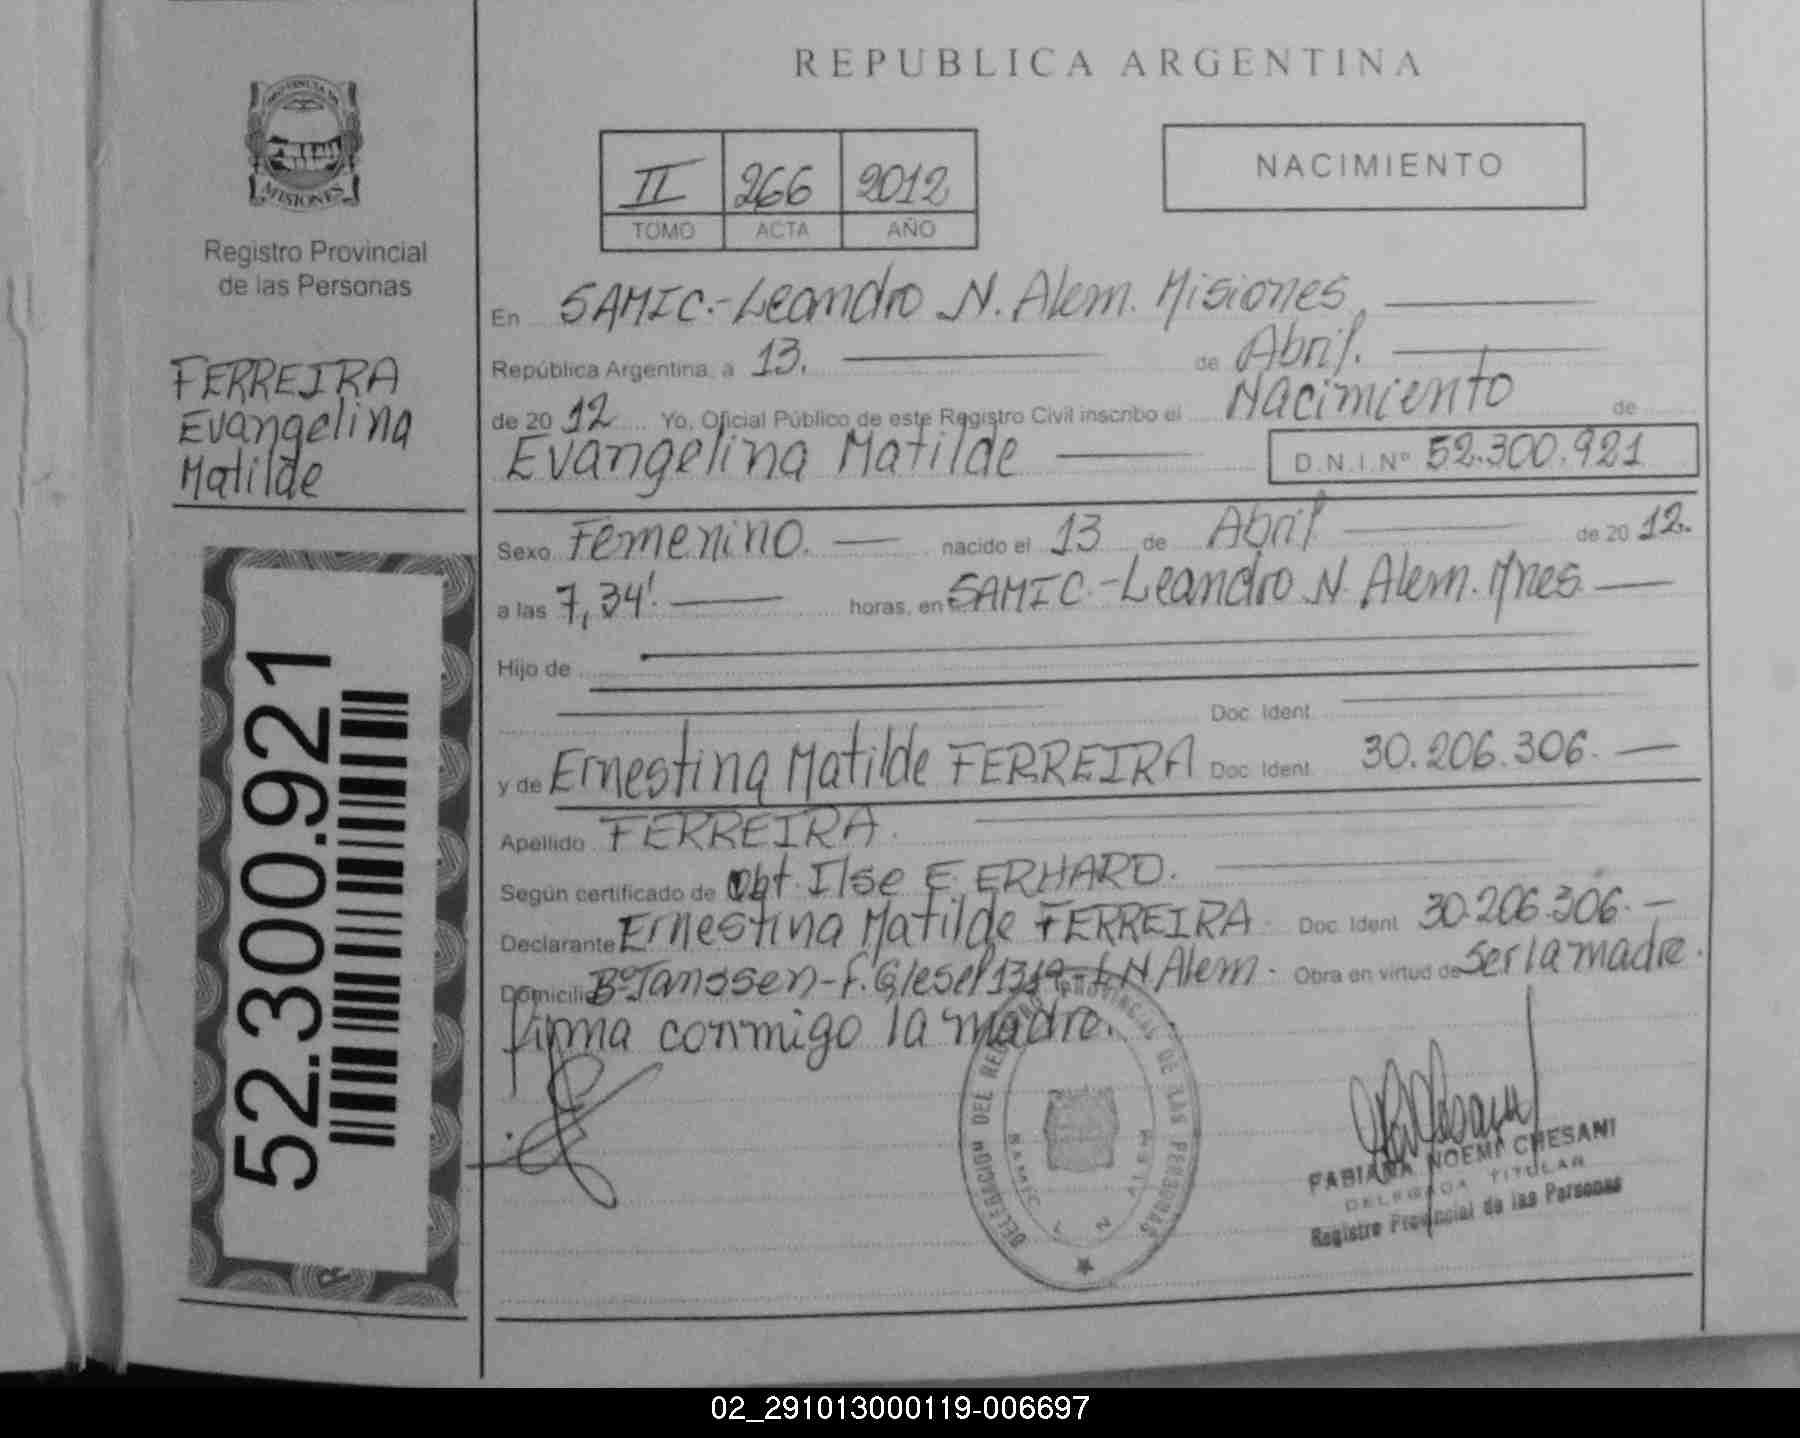 REPUBLICA ARGENTINA
MISIONES
Registro Provincial
de las Personas
FERREIRA
Evangelina
Matilde
52.300.921
II 266 2012
TOMO ACTA AÑO
NACIMIENTO
En SAMIC.-Leandro N. Alem. Misiones
República Argentina, a 13. de Abril.
de 20 12 Yo, Oficial Público de este Registro Civil inscribo el Nacimiento de
Evangelina Matilde D.N.I. Nº 52.300.921
Sexo Femenino. nacido el 13 de Abril de 20 12.
a las 7,34'. horas, en SAMIC.-Leandro N. Alem. Mnes.
Hijo de
Doc. Ident.
y de Ernestina Matilde FERREIRA Doc. Ident. 30.206.306.
Apellido FERREIRA.
Según certificado de Obt. Ilse E. ERHARD.
Declarante Ernestina Matilde FERREIRA Doc. Ident. 30.206.306.
Domicilio Bº Janssen - F. 1319 - L.N. Alem. Obra en virtud de ser la madre.
Firma conmigo la madre.
DELEGACION DEL REGISTRO PROVINCIAL DE LAS PERSONAS
SAMIC
FABIANA NOEMI CHESANI
DELEGADA TITULAR
Registro Provincial de las Personas
02_291013000119-006697